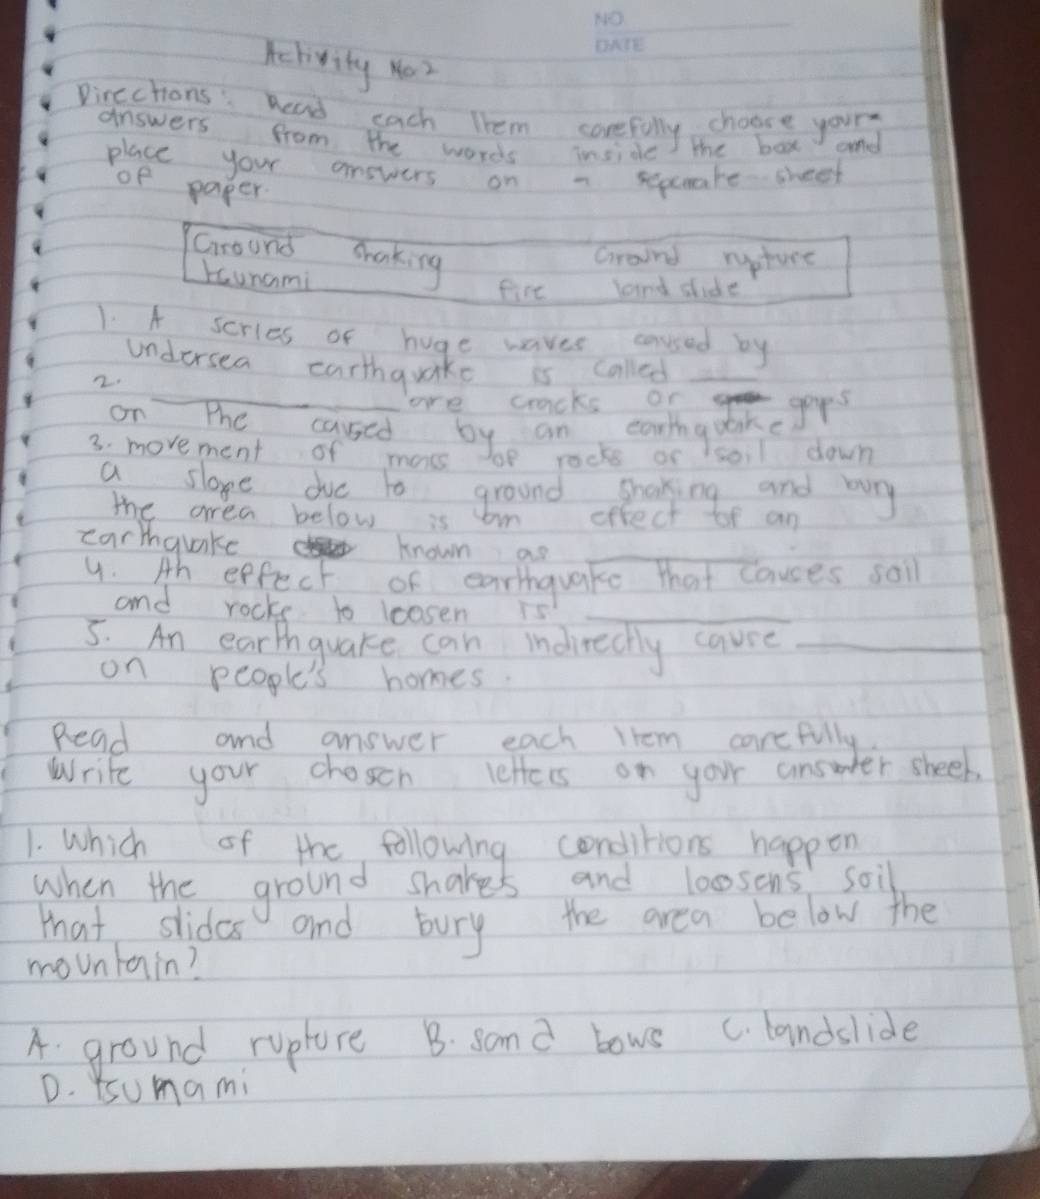 NO
DATE
Activity No 2
Directions: Read each Item carefully choose your
answers from the words inside the box and
place your answers on a separate sheet
of paper.
Ground shaking Ground rupture
tsunami fire landslide
1. A series of huge waves caused by
undersea earthquake is called ____
2. ____ are cracks or gaps
on the caused by an earthquake
3. movement of mass of rocks or soil down
a slope due to ground shaking and bury
the area below is an effect of an
earthquake known as ____
4. An effect of earthquake that causes soil
and rocks to loosen is ____
5. An earthquake can indirectly cause ____
on people's homes.
Read and answer each item carefully.
Write your chosen letters on your answer sheet.
1. Which of the following conditions happen
when the ground shakes and loosens soil
that slides and bury the area below the
mountain?
A. ground rupture B. sand bows C. landslide
D. tsumami